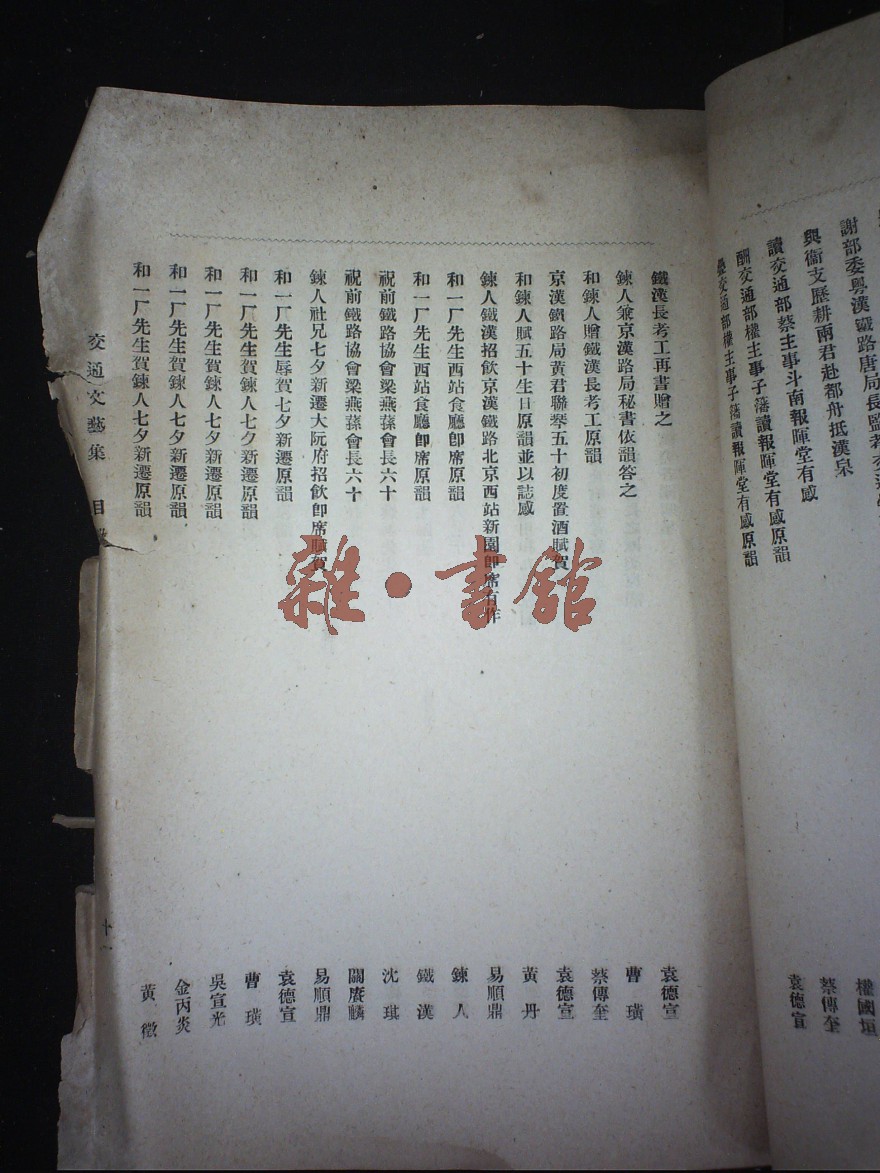 謝部委粵漢鐵路唐局長監考交通
與衞支歷耕兩君赴都舟抵漢泉
讀交通部蔡主事斗南報暉堂有感
酬交通部權主事子籓讀報暉堂有感原韻
疊交通部權主事子籓讀報暉堂有感原韻
權國垣
蔡傳奎
袁德宣
鐵漢長考工再書贈之 袁德宣
鍊人兼京漢路局秘書依韻答之 曹璜
和鍊人贈鐵漢長考工原韻 蔡傳奎
京漢鐵路局黃君聯琴五十初度置酒賦賀 袁德宣
和鍊人賦五十生日原韻並以誌感 黃丹
鍊人鐵漢招飲京漢鐵路北京西站新園卽席有作 易順鼎
和一厂先生西站食廳卽席原韻 鍊人
和一厂先生西站食廳卽席原韻 鐵漢
祝前鐵路協會梁燕蓀會長六十 沈琪
祝前鐵路協會梁燕蓀會長六十 關賡麟
鍊人社兄七夕新遷大阮府招飲卽席賦賀 易順鼎
和一厂先生辱賀七夕新遷原韻 袁德宣
和一厂先生賀鍊人七夕新遷原韻 曹璜
和一厂先生賀鍊人七夕新遷原韻 吳宣光
和一厂先生賀鍊人七夕新遷原韻 金丙炎
和一厂先生賀鍊人七夕新遷原韻 黃徵
交通文藝集 目
十一
雜·書館